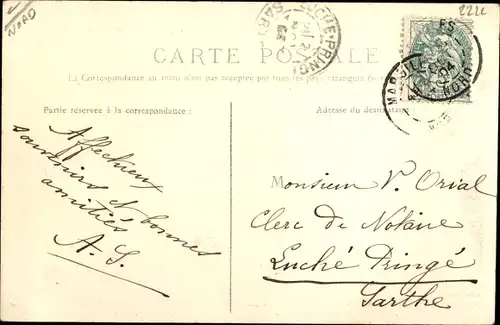 NORD
2221
CARTE POSTALE
La Correspondance au recto n'est pas acceptée par tous les pays étrangers
Partie réservée à la correspondance :
Adresse du destinataire
Affectueux
souvenirs et bonnes
amitiés
A. S.
Monsieur V. Orial
Clerc de Notaire
Luché Pringé
Sarthe